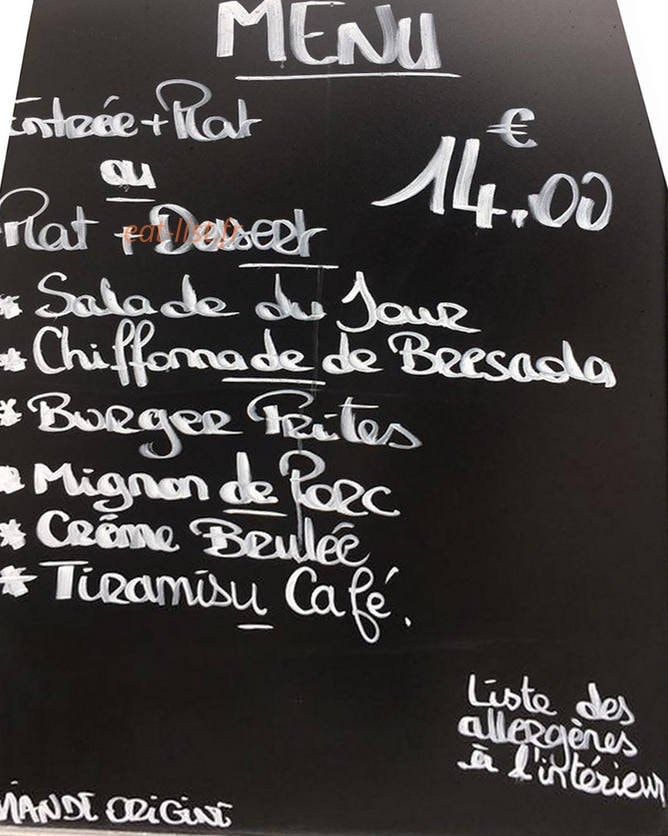 MENU
Entrée + Plat
ou
€
14.00
Plat + Dessert
eat-list.fr
* Salade du Jour
* Chiffonnade de Bresaola
* Burger Frites
* Mignon de Porc
* Crème Brulée
* Tiramisu Café.
Liste des
allergènes
à l'intérieur
VIANDE ORIGINE